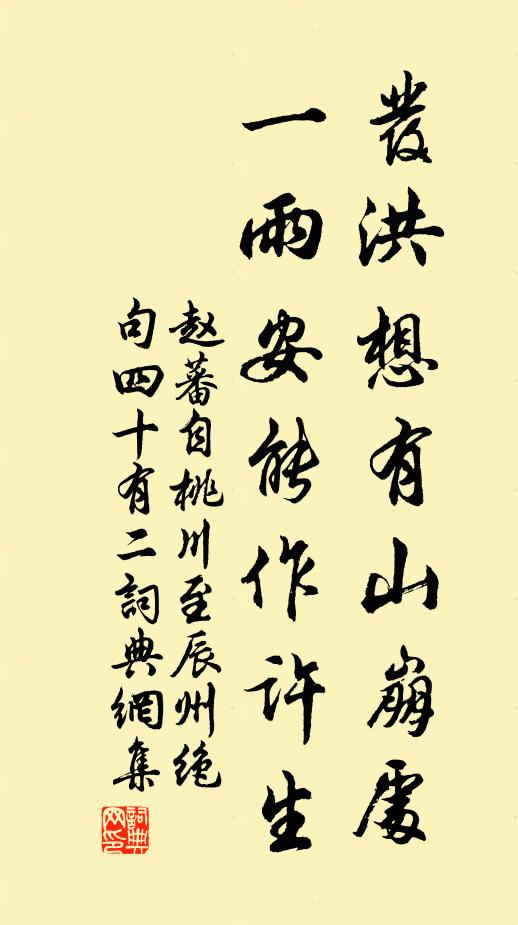 發洪想有山崩處
一雨安能作許生
赵蕃自桃川至辰州绝
句四十有二詞典網集
詞典
网印